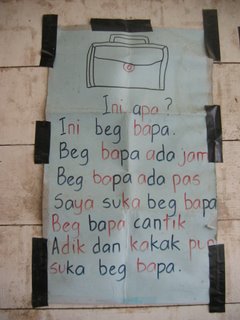 Ini apa?
Ini beg bapa.
Beg bapa ada jam
Beg bapa ada pas
Saya suka beg bapa
Beg bapa cantik
Adik dan kakak pun
suka beg bapa.